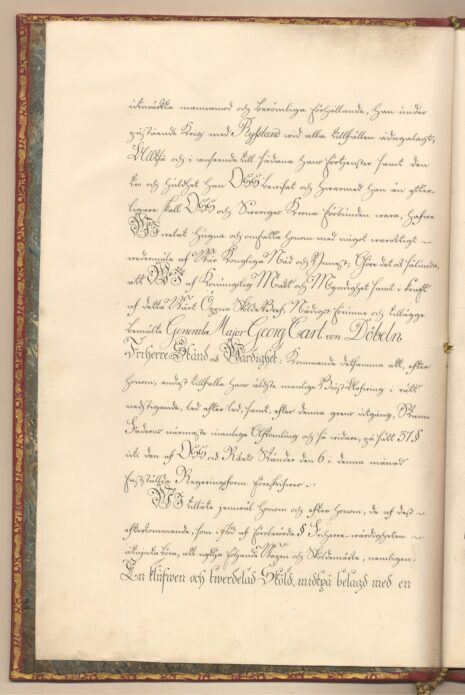 utmärkta mannamod och berömliga förhållande, Han under
påstående Krig med Ryssland vid alla tillfällen ådagalagt;
Alltså och i anseende till sådana Hans förtjenster samt den
tro och huldhet Han Oss bevisat och hvarmed Han än ytter-
ligare skall Oss och Sveriges Krona förbunden vara, hafve
Wi velat hugna och omfatta honom med något varaktigt
vedermäle af Vår Kongliga Nåd och Ynnest; Göre det ock härmedelst
att Wi af Konungslig Makt och Myndighet samt i kraft
af detta Vårt Öppna Sköldebref, Nådigst förunne och tillägge
bemälte General Major Georg Carl von Döbeln
Friherre Stånd och Wärdighet, kommande detsamma att, efter
honom, endast tillfalla Hans äldste manlige Bröst-Arfving i rätt
nedstigande led efter led, samt, efter denna grens utgång, Stam-
Faderns närmaste manlige Afkomling och så vidare, på sätt 37 §
uti den af Oss och Riksens Ständer den 6 i denna månad
fastställda Regeringsform föreskrifver.
Wi tillåte jemväl honom och efter honom, de af dess
efterkommande, som i stöd af förberörde § Friherre-värdigheten
åtnjuta böra, att nyttja följande Vapen och Sköldemärke, nemligen:
En klufwen och twerdelad Sköld, midtpå belagd med en